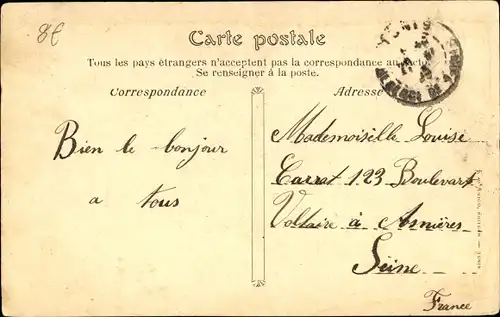 8f
Carte postale
TUNIS
Tous les pays étrangers n'acceptent pas la correspondance au recto
Se renseigner à la poste.
Correspondance
Adresse
Bien le bonjour
a tous
Mademoiselle Louise
Carrat 123 Boulevart
Voltaire à Asnières
Seine
France